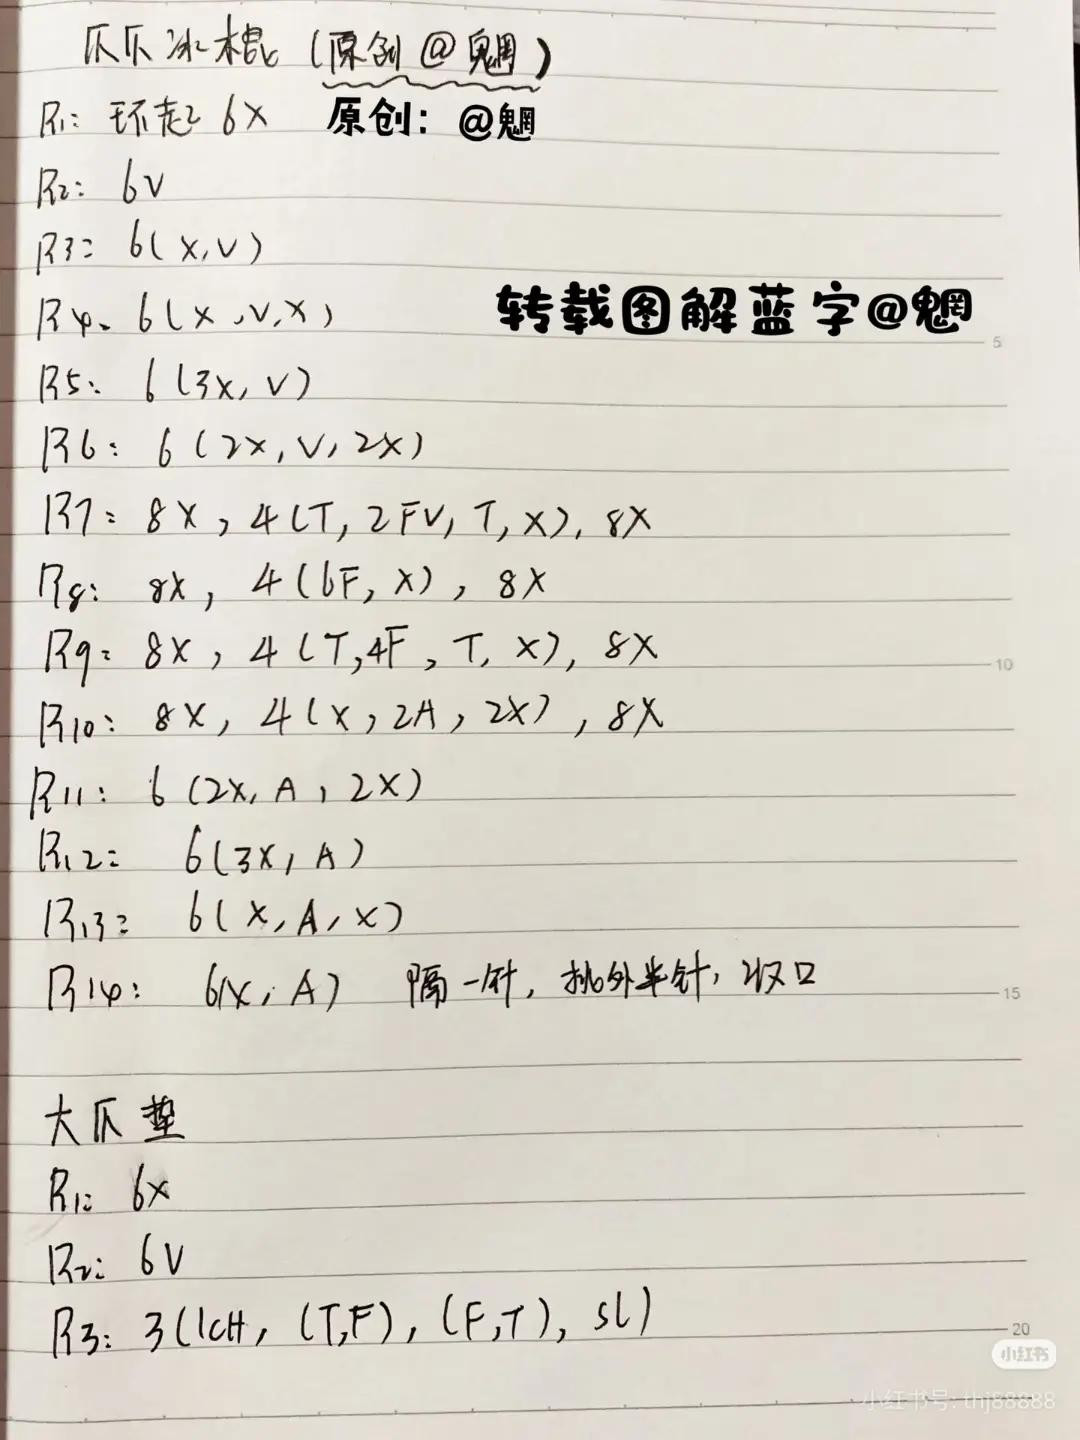 爪爪冰棍 (原创@魍)
R1: 环起 6X
原创: @魍
R2: 6V
R3: 6(X,V)
转载图解蓝字@魍
R4. 6(X,V,X)
5
R5: 6(3X, V)
R6: 6(2X, V, 2X)
R7: 8X, 4(T, 2FV, T, X), 8X
R8: 8X, 4(6F, X), 8X
R9: 8X, 4(T,4F, T, X), 8X
10
R10: 8X, 4(X, 2A, 2X), 8X
R11: 6(2X, A, 2X)
R12: 6(3X, A)
R13: 6(X, A, X)
R14: 6(X, A) 隔一针, 挑外半针, 收口
15
大爪垫
R1: 6X
R2: 6V
R3: 3(1CH, (T,F), (F,T), sl)
20
小红书
小红书号: thj88888